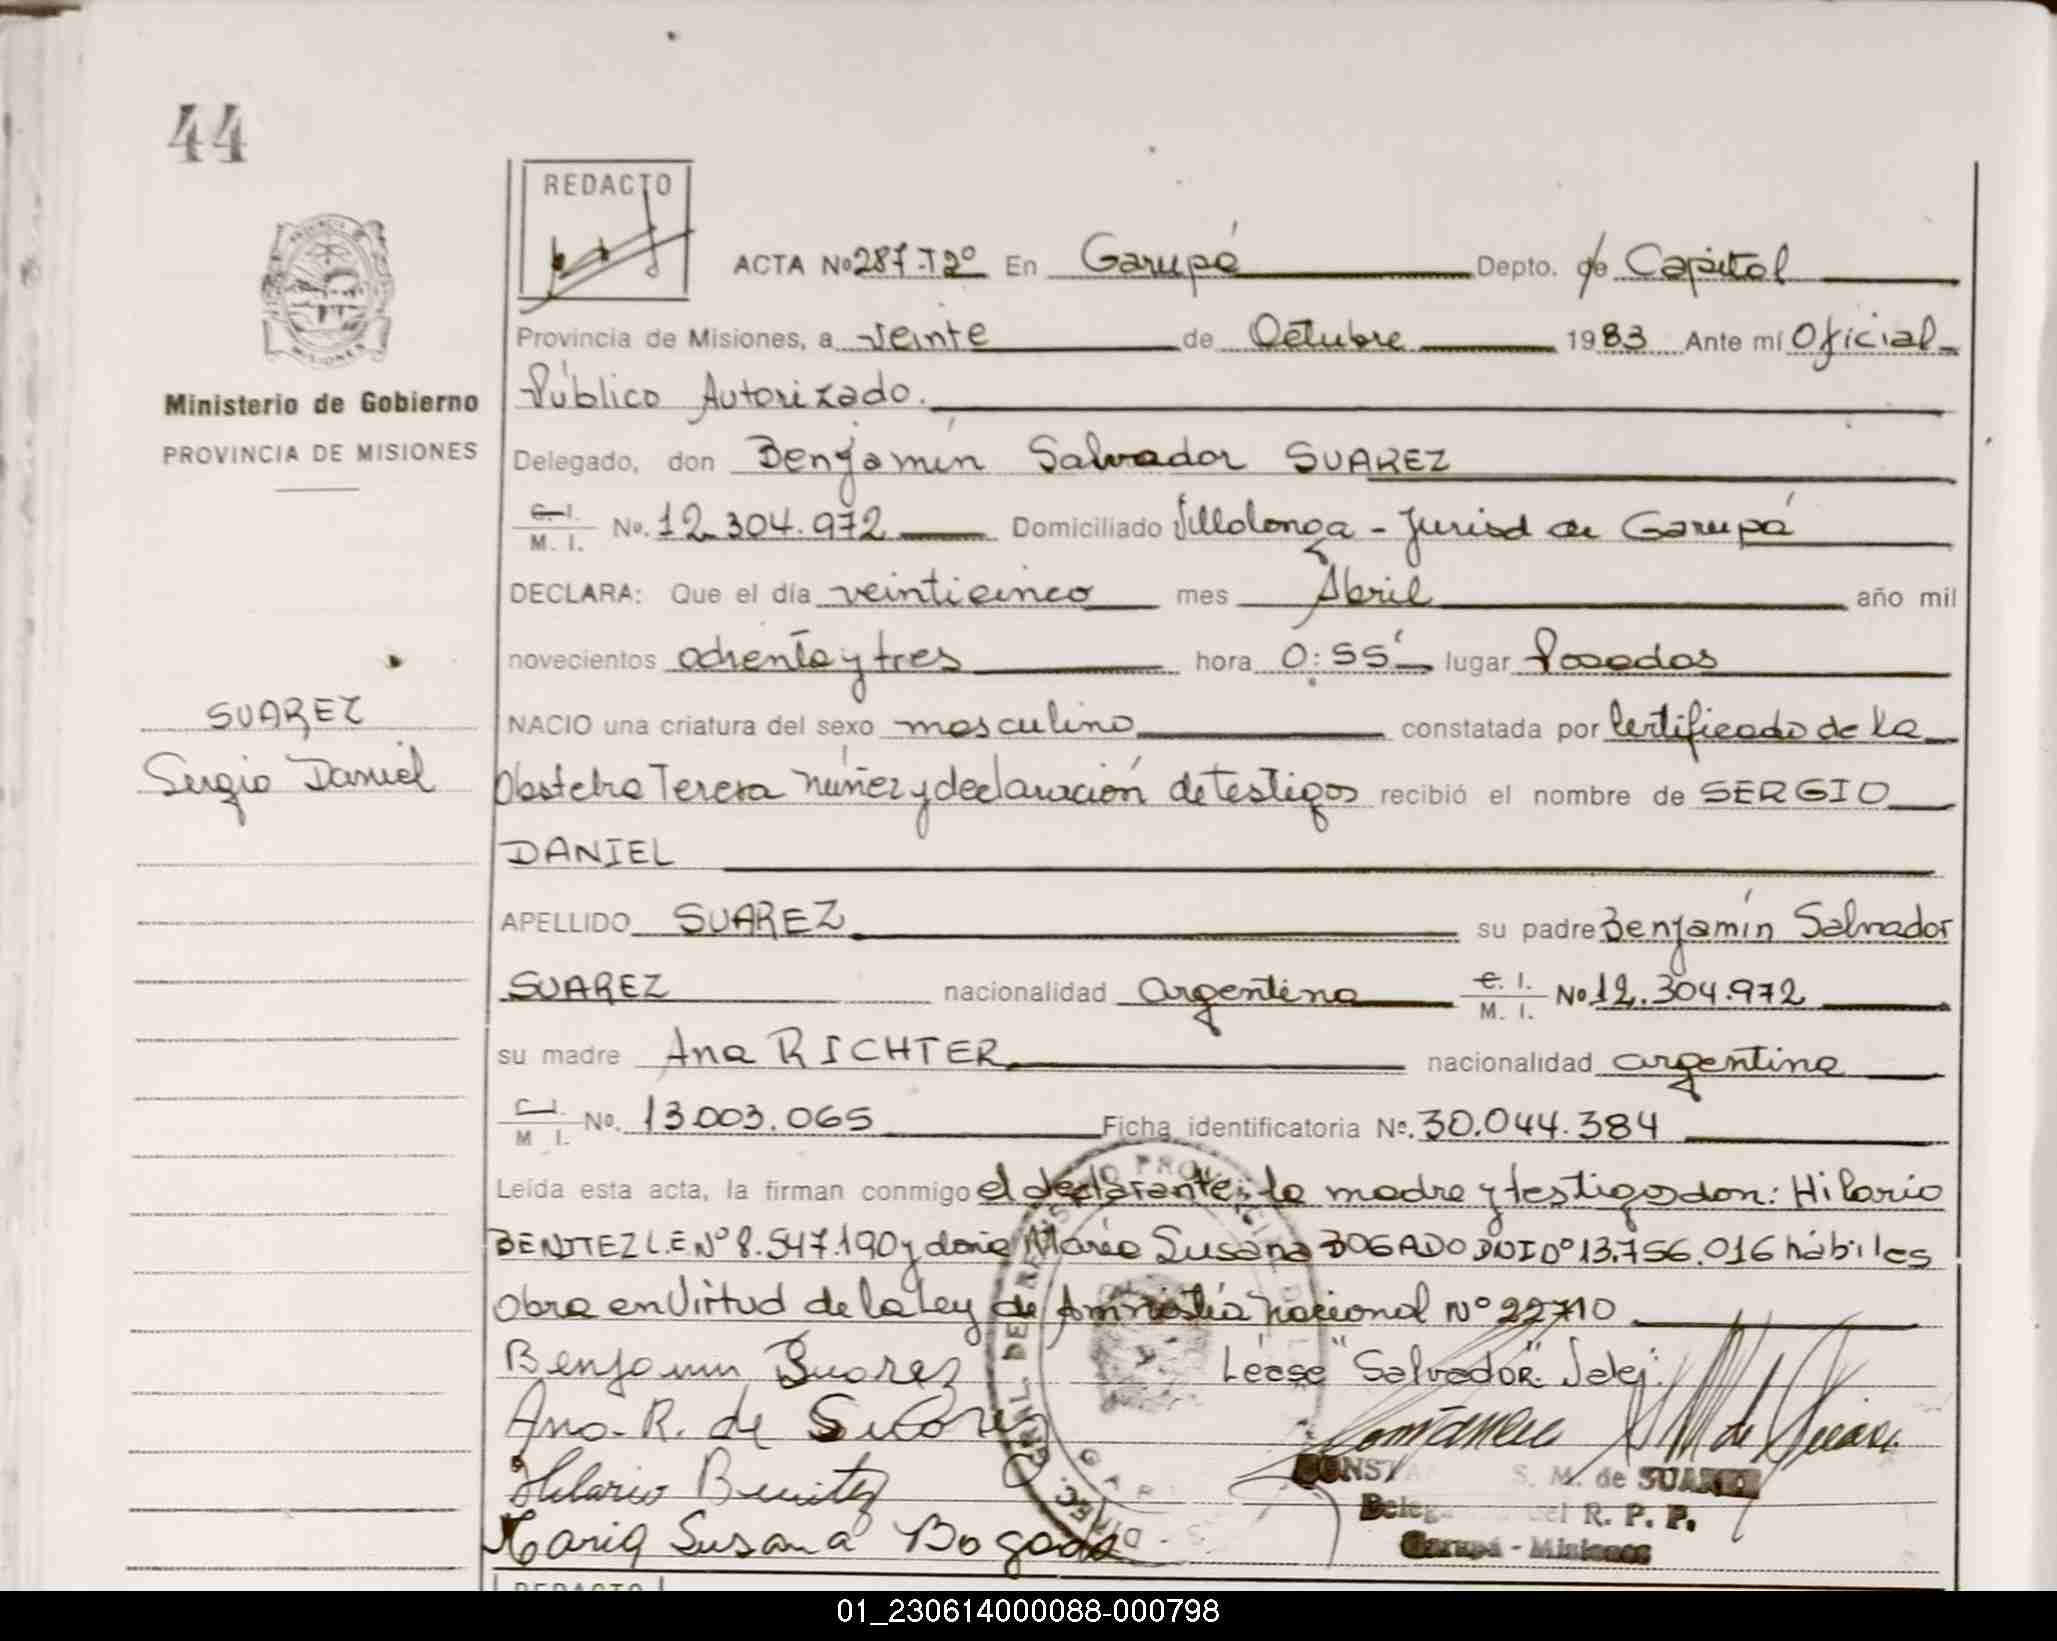 44
REDACTO
ACTA No 287.T2º En Garupá Depto. de Capital
Provincia de Misiones, a veinte de Octubre 1983 Ante mí Oficial
Público Autorizado.
Ministerio de Gobierno
PROVINCIA DE MISIONES
Delegado, don Benjamín Salvador SUAREZ
C. I. / M. I. No. 12.304.972 Domiciliado Villalonga - Jurisd de Garupá
DECLARA: Que el día veinticinco mes Abril año mil
novecientos ochenta y tres hora 0:55' lugar Posadas
SUAREZ
Sergio Daniel
NACIO una criatura del sexo masculino constatada por Certificado de la
Obstetra Teresa Núñez y declaración de testigos recibió el nombre de SERGIO
DANIEL
APELLIDO SUAREZ su padre Benjamín Salvador
SUAREZ nacionalidad argentina C. I. / M. I. No 12.304.972
su madre Ana RICHTER nacionalidad argentina
C. I. / M. I. No. 13.003.065 Ficha identificatoria No. 30.044.384
Leída esta acta, la firman conmigo el declarante, la madre y testigos don: Hilario
BENITEZ L.E Nº 8.547.190 y doña María Susana BOGADO DNI Nº 13.756.016 hábiles
Obra en Virtud de la Ley de Amnistía Nacional Nº 22710
Benjamin Suarez Léase "Salvador".
Ana. R. de Suarez
Hilario Benitez
S. M. de SUAREZ
Maria Susana Bogado
del R. P. P.
Garupá - Misiones
REDACTO
01_230614000088-000798